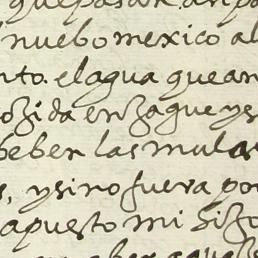 que pasar
nuebo mexico al
nto. el agua que an
cozida en zaque ys
beber las mulas
s, y si no fuera por
apuesto mi hizo